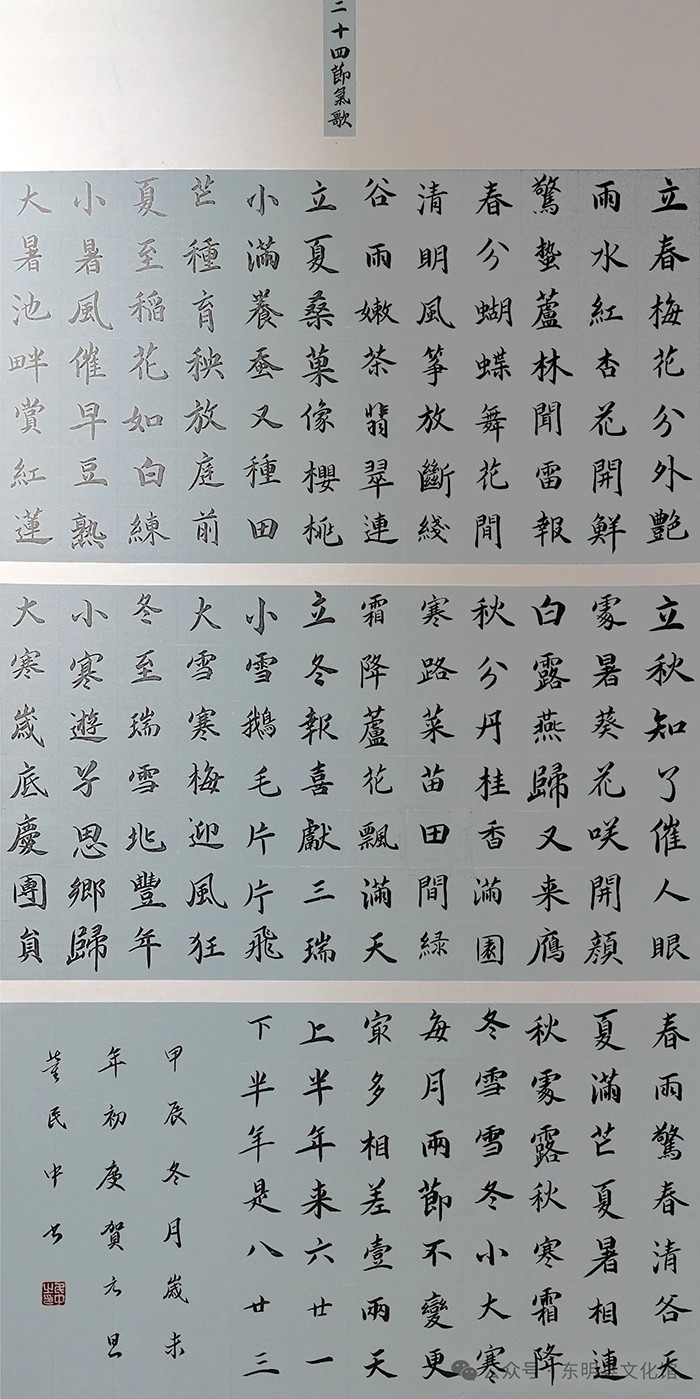 二十四節氣歌
立春梅花分外艷
雨水紅杏花開鮮
驚蟄蘆林聞雷報
春分蝴蝶舞花間
清明風箏放斷綫
谷雨嫩茶翡翠連
立夏桑菓像櫻桃
小滿養蚕又種田
芒種育秧放庭前
夏至稻花如白練
小暑風催早豆熟
大暑池畔賞紅蓮
立秋知了催人眠
處暑葵花咲開顔
白露燕歸又来鴈
秋分丹桂香滿園
寒路菜苗田間緑
霜降蘆花飄滿天
立冬報喜獻三瑞
小雪鵝毛片片飛
大雪寒梅迎風狂
冬至瑞雪兆豐年
小寒遊子思鄉歸
大寒嵗底慶團員
春雨驚春清谷天
夏滿芒夏暑相連
秋處露秋寒霜降
冬雪雪冬小大寒
每月兩節不變更
㝡多相差壹兩天
上半年来六廿一
下半年是八廿三
甲辰冬月嵗末
年初庚賀元旦
董民中书
公众号·东明县文化馆